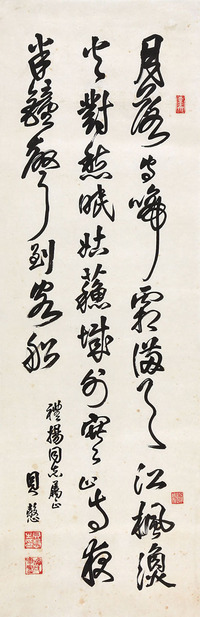 月落烏啼霜滿天江楓漁
火對愁眠姑蘇城外寒山寺夜
半鐘聲到客船
禮揚同志屬正